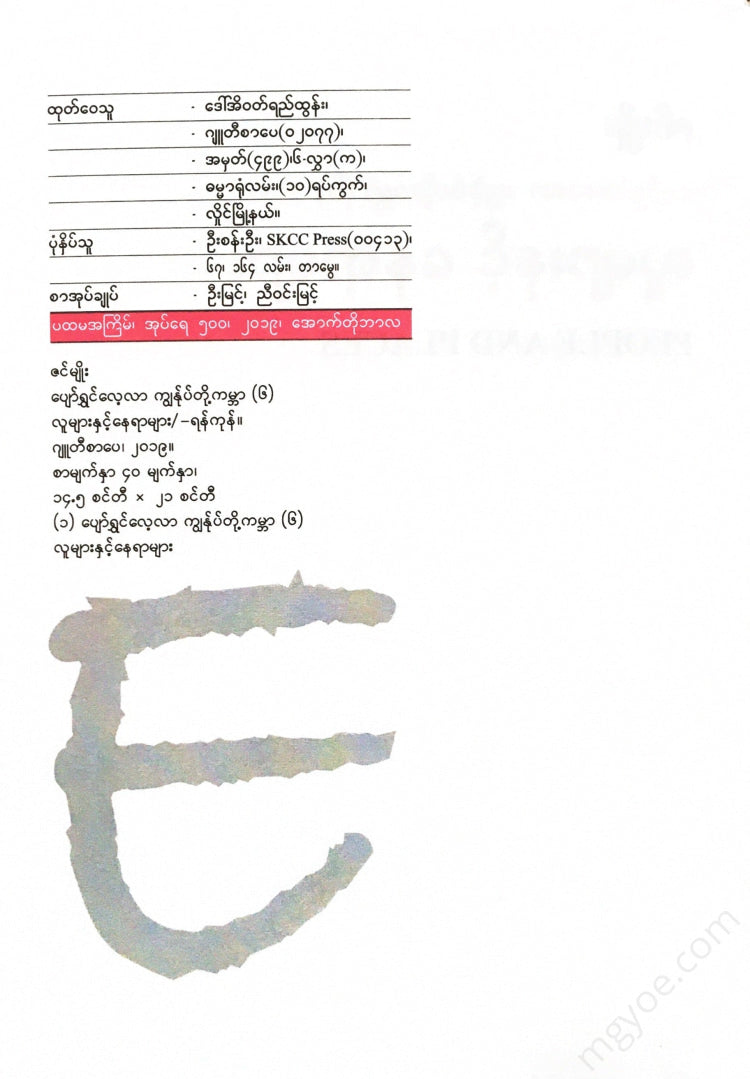 ထုတ်ဝေသူ - ဒေါ်အိဝတ်ရည်ထွန်း၊
- ဂျူတီစာပေ(၀၂၀၇၇)၊
- အမှတ်(၄၉၉)၊၆-လွှာ(က)၊
- ဓမ္မာရုံလမ်း၊(၁၀)ရပ်ကွက်၊
- လှိုင်မြို့နယ်။
ပုံနှိပ်သူ - ဦးစန်းဦး၊ SKCC Press(၀၀၄၁၃)၊
- ၆၇၊ ၁၆၄ လမ်း၊ တာမွေ။
စာအုပ်ချုပ် - ဦးမြင့်၊ ညီဝင်းမြင့်
ပထမအကြိမ်၊ အုပ်ရေ ၅၀၀၊ ၂၀၁၉၊ အောက်တိုဘာလ
ဇင်မျိုး
ပျော်ရွှင်လေ့လာ ကျွန်ုပ်တို့ကမ္ဘာ (၆)
လူများနှင့်နေရာများ/ –ရန်ကုန်။
ဂျူတီစာပေ၊ ၂၀၁၉။
စာမျက်နှာ ၄၀ မျက်နှာ၊
၁၄.၅ စင်တီ × ၂၁ စင်တီ
(၁) ပျော်ရွှင်လေ့လာ ကျွန်ုပ်တို့ကမ္ဘာ (၆)
လူများနှင့်နေရာများ
E
mgyoe.com